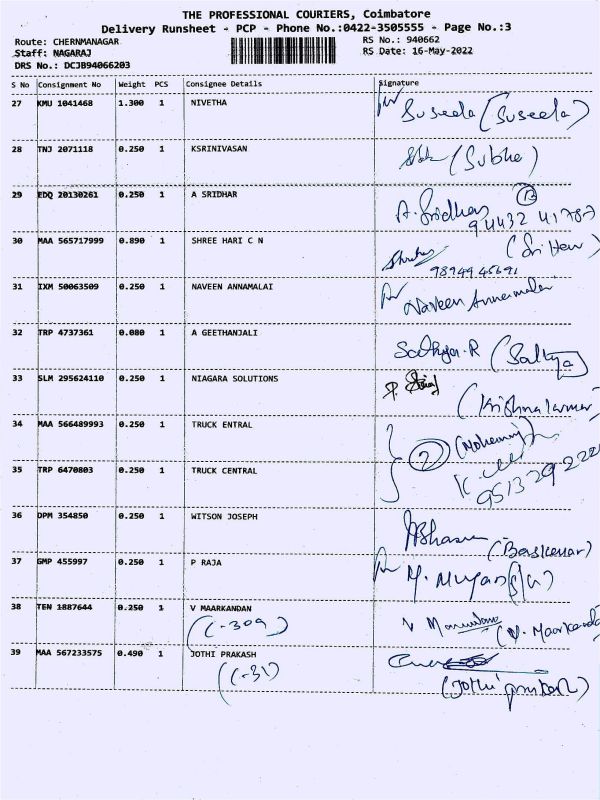 THE PROFESSIONAL COURIERS, Coimbatore
Delivery Runsheet - PCP - Phone No.:0422-3505555 - Page No.:3
Route: CHERNMANAGAR RS No.: 940662
Staff: NAGARAJ RS Date: 16-May-2022
DRS No.: DCJB94066203
S No Consignment No Weight PCS Consignee Details Signature
27 KMU 1041468 1.300 1 NIVETHA Suseela (Suseela)
28 TNJ 2071118 0.250 1 KSRINIVASAN (Subha)
29 EDQ 20130261 0.250 1 A SRIDHAR A. Sridhar
94432 41787
30 MAA 565717999 0.890 1 SHREE HARI C N
9894445691
31 IXM 50063509 0.250 1 NAVEEN ANNAMALAI Naveen Annamalai
32 TRP 4737361 0.080 1 A GEETHANJALI Sathya.R (Sathya)
33 SLM 295624110 0.250 1 NIAGARA SOLUTIONS (Krishnakumar)
34 MAA 566489993 0.250 1 TRUCK ENTRAL
2
35 TRP 6470803 0.250 1 TRUCK CENTRAL
36 DPM 354850 0.250 1 WITSON JOSEPH (Baskaran)
37 GMP 455997 0.250 1 P RAJA
38 TEN 1887644 0.250 1 V MAARKANDAN
(-309)
39 MAA 567233575 0.490 1 JOTHI PRAKASH
(-31) (Jothi prakash)